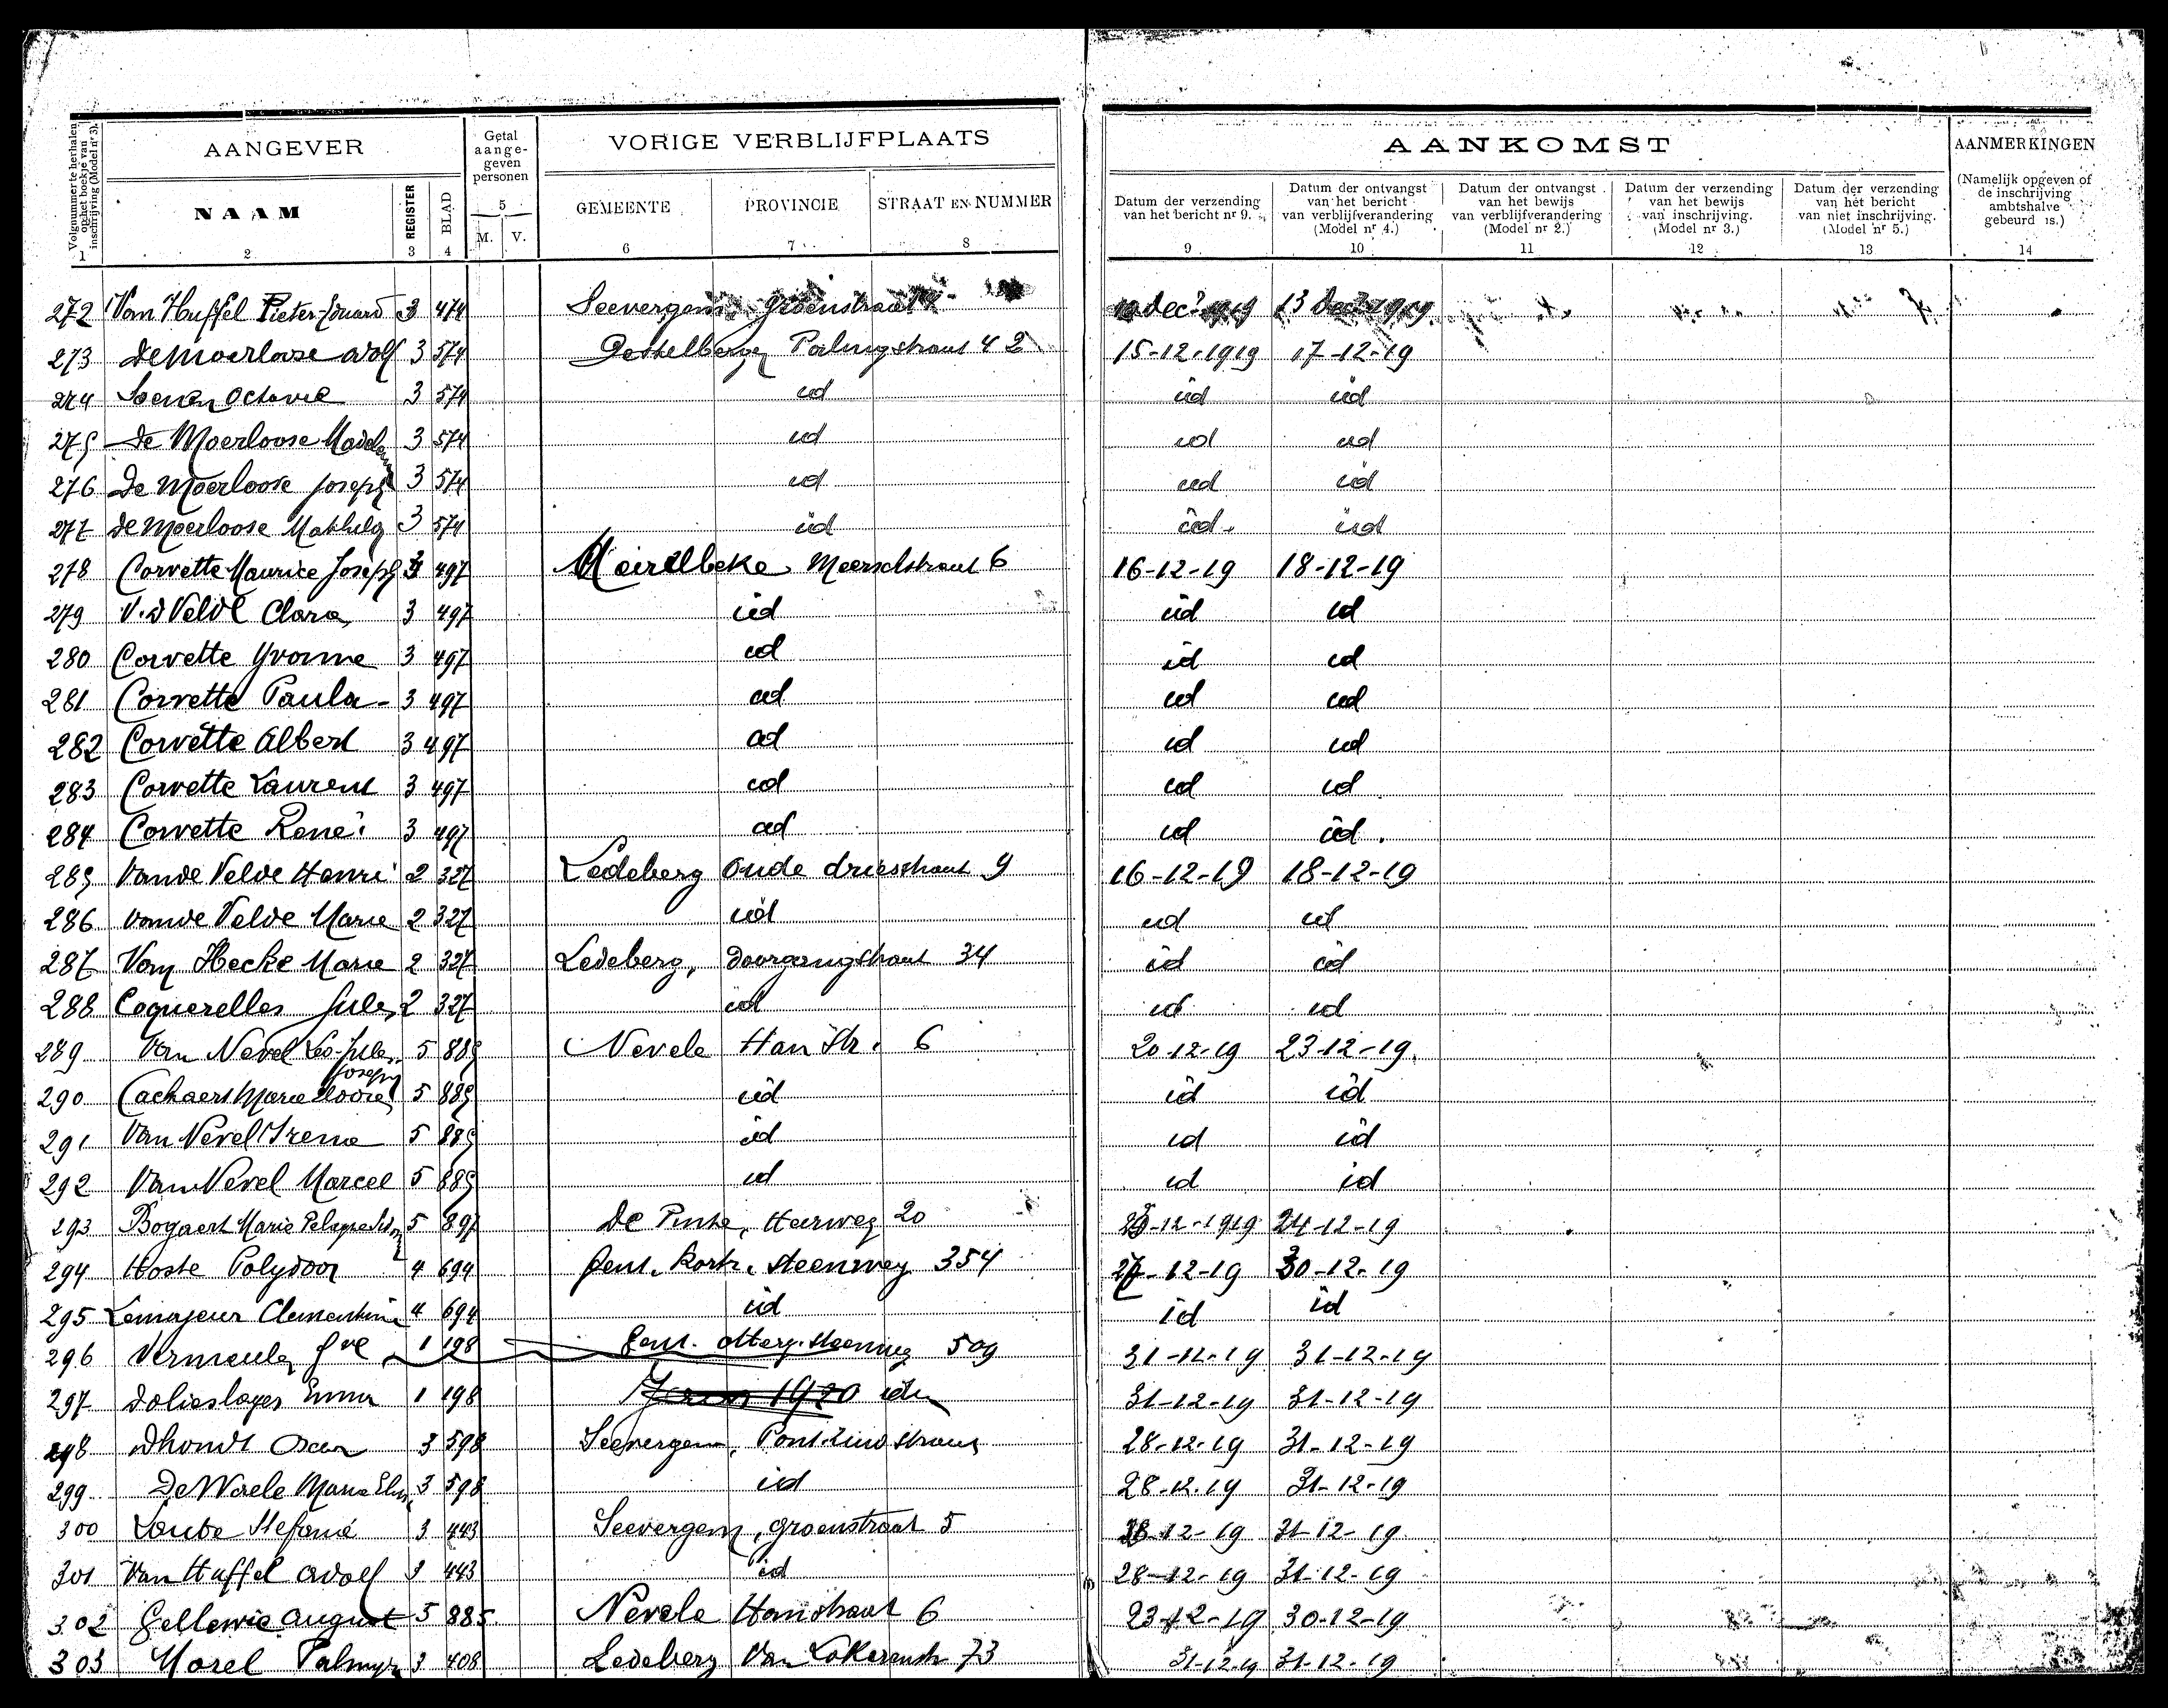 Volgnummer te herhalen op het boekje van inschrijving (Model nr 3).
AANGEVER
Getal aange-geven personen
VORIGE VERBLIJFPLAATS
AANKOMST
AANMERKINGEN
NAAM
REGISTER
BLAD
5
M. V.
GEMEENTE
PROVINCIE
STRAAT EN NUMMER
Datum der verzending van het bericht nr 9.
Datum der ontvangst van het bericht van verblijfverandering (Model nr 4.)
Datum der ontvangst van het bewijs van verblijfverandering (Model nr 2.)
Datum der verzending van het bewijs van inschrijving. (Model nr 3.)
Datum der verzending van het bericht van niet inschrijving. (Model nr 5.)
(Namelijk opgeven of de inschrijving ambtshalve gebeurd is.)
1 2 3 4 6 7 8 9 10 11 12 13 14
272 Van Huffel Pieter-Eduard 3 474 Seevergem groenstraat 13 Dec 1919
273 De Moerloose Adolf 3 574 Destelbergen Palingstraat 42 15-12-1919 17-12-19
274 Soenen Octavie 3 574 id id id
275 De Moerloose Madelena 3 574 id id id
276 De Moerloose Joseph 3 574 id id id
277 De Moerloose Mathilde 3 574 id id id
278 Corvette Maurice Joseph 3 497 Meirelbeke Meerschstraat 6 16-12-19 18-12-19
279 V.d Velde Clara 3 497 id id id
280 Corvette Yvonne 3 497 id id id
281 Corvette Paula 3 497 id id id
282 Corvette Albert 3 497 id id id
283 Corvette Laurent 3 497 id id id
284 Corvette René 3 497 id id id
285 Vande Velde Henri 2 327 Ledeberg Oude driesstraat 9 16-12-19 18-12-19
286 Vande Velde Marie 2 327 id id id
287 Van Hecke Marie 2 327 Ledeberg, Doorgangstraat 34 id id
288 Coquerelles Jules 2 327 id id id
289 Van Nevel Leo-Jules Joseph 5 885 Nevele Han Str. 6 20-12-19 23-12-19
290 Cachaert Marie 5 885 id id id
291 Van Nevel Irena 5 885 id id id
292 Van Nevel Marcel 5 885 id id id
293 Bogaert Marie 5 897 De Pinte, Heerweg 20 24-12-19
294 Hoste Polydoor 4 694 Gent. Kortr. steenweg 354 27-12-19 30-12-19
295 Lemajeur Clementine 4 694 id id id
296 Vermeulen 1 198 Gent. Otterg. steenweg 509 31-12-19 31-12-19
297 Dolieslager Emma 1 198 1920 idem 31-12-19 31-12-19
298 Dhondt Oscar 3 598 Seevergem, Pont-Zuidstraat 28-12-19 31-12-19
299 De Waele Maria 3 598 id 28-12-19 31-12-19
300 Stefanie 3 443 Seevergem, groenstraat 5 28-12-19 31-12-19
301 Van Huffel Adolf 3 443 id 28-12-19 31-12-19
302 Gellewie August 5 885 Nevele Hanstraat 6 23-12-19 30-12-19
303 Morel Palmyre 3 408 Ledeberg Van Lokerenstr 73 31-12-19 31-12-19